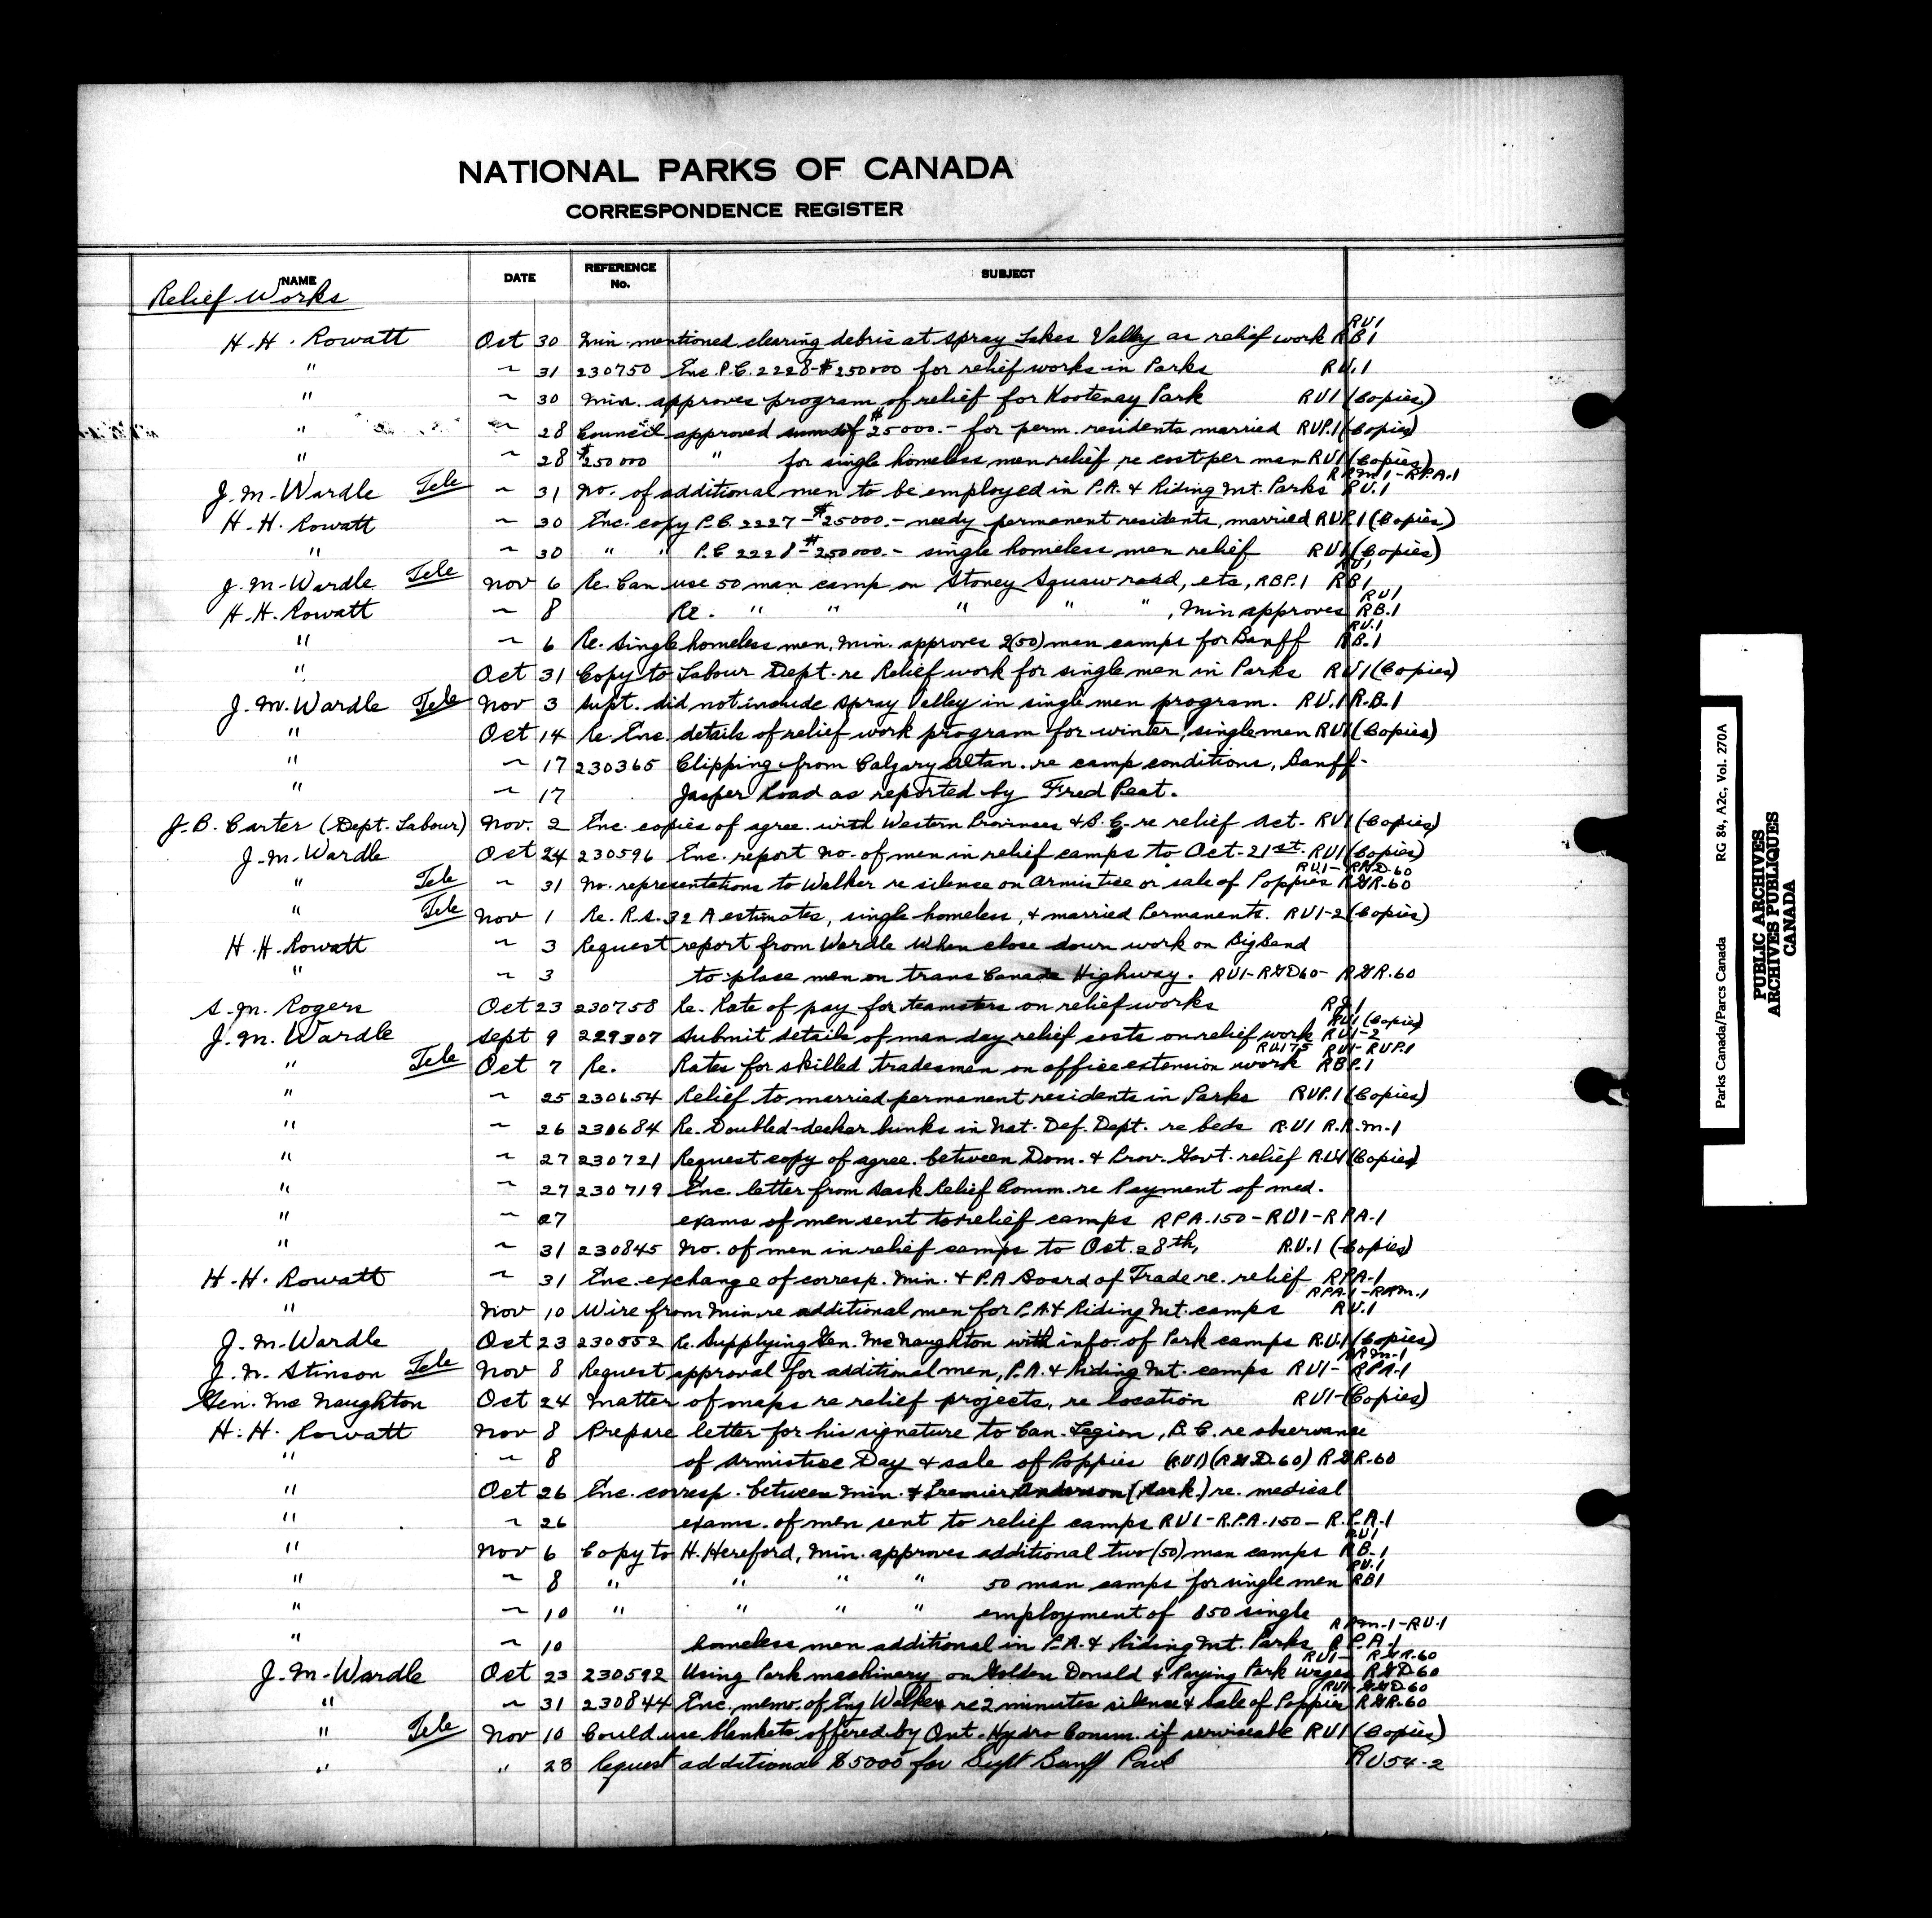 NATIONAL PARKS OF CANADA
CORRESPONDENCE REGISTER
NAME DATE REFERENCE No. SUBJECT
Relief Works
H. H. Rowatt Oct 30 Min. mentioned clearing debris at Spray Lakes Valley as relief work RV1 RB1
" ~ 31 230750 Enc. P.C. 2228-$250000 for relief works in Parks RV.1
" ~ 30 Min. approves program of relief for Kootenay Park RV1 (Copies)
" ~ 28 Council approved sum of $25000.- for perm. residents married RVP.1 (Copies)
" ~ 28 $250000 " for single homeless men relief re cost per man RV1 (Copies)
J. M. Wardle Tele ~ 31 No. of additional men to be employed in P.A. & Riding Mt. Parks RRM.1-RPA.1 RV.1
H. H. Rowatt ~ 30 Enc. copy P.C. 2227-$25000.- needy permanent residents, married RVP.1 (Copies)
" ~ 30 " " P.C 2228-$250000.- single homeless men relief RV1 (Copies)
J. M. Wardle Tele Nov 6 Re. Can use 50 man camp on Stoney Squaw road, etc, RBP.1 RV1 RB1
H. H. Rowatt ~ 8 Re. " " " " " , Min approves RV1 RB.1
" ~ 6 Re. Single homeless men, Min. approves 2(50) men camps for Banff RV.1 RB.1
" Oct 31 Copy to Labour Dept. re Relief work for single men in Parks RV1 (Copies)
J. M. Wardle Tele Nov 3 Supt. did not include Spray Valley in single men program. RV.1 R.B.1
" Oct 14 Re. Enc. details of relief work program for winter, single men RV1 (Copies)
" ~ 17 230365 Clipping from Calgary Altan. re camp conditions, Banff-
" ~ 17 Jasper Road as reported by Fred Peat.
J. B. Carter (Dept. Labour) Nov. 2 Enc. copies of agree. with Western Provinces & B.C. re relief Act. RV1 (Copies)
J. M. Wardle Oct 24 230596 Enc. report No. of men in relief camps to Oct-21st. RV1 (Copies)
" Tele ~ 31 No. representations to Walker re silence on Armistice or sale of Poppies RV.1-RGD-60 RGR-60
" Tele Nov 1 Re. R.S. 32 A estimates, single homeless, & married Permanents. RV1-2 (Copies)
H. H. Rowatt ~ 3 Request report from Wardle when close down work on Big Bend
" ~ 3 to place men on trans Canada Highway. RV1-RGD60-RGR.60
S. M. Rogers Oct 23 230758 Re. Rate of pay for teamsters on relief works RJ.1
J. M. Wardle Sept 9 229307 Submit details of man day relief costs on relief work RV1 (Copies) RV1-2
" Tele Oct 7 Re. Rates for skilled tradesmen on office extension work RU175 RV1-RVP.1 RBP.1
" ~ 25 230654 Relief to married permanent residents in Parks RVP.1 (Copies)
" ~ 26 230684 Re. Doubled-decker bunks in Nat. Def. Dept. re beds RV1 R.R.M.1
" ~ 27 230721 Request copy of agree. between Dom. & Prov. Govt. relief R.V.1 (Copies)
" ~ 27 230719 Enc. letter from Sask Relief Comm. re Payment of med.
" ~ 27 exams of men sent to relief camps RPA.150-RV1-RPA-1
" ~ 31 230845 No. of men in relief camps to Oct. 28th, R.V.1 (Copies)
H. H. Rowatt ~ 31 Enc. exchange of corresp. Min. & P.A Board of Trade re. relief RPA-1
" Nov 10 Wire from Min. re additional men for P.A & Riding Mt. camps RPA.1-RRM.1 RV.1
J. M. Wardle Oct 23 230552 Re. Supplying Gen. McNaughton with info. of Park camps R.V.1 (Copies)
J. N. Stinson Tele Nov 8 Request approval for additional men, P.A. & Riding Mt. camps RV1- RRM-1 RPA-1
Gen. Mc Naughton Oct 24 Matter of maps re relief projects, re location RV1-(Copies)
H. H. Rowatt Nov 8 Prepare letter for his signature to Can. Legion, B.C. re observance
" ~ 8 of Armistice Day & sale of Poppies (RV1)(RGD-60) RGR-60
" Oct 26 Enc. corresp. between Min. & Premier Anderson (Sask.) re. medical
" ~ 26 exams. of men sent to relief camps RV1-R.P.A.150-R.P.A.1
" Nov 6 Copy to H. Hereford, Min. approves additional two (50) man camps RV1 RB-1
" ~ 8 " " " " 50 man camps for single men RV.1 RB1
" ~ 10 " " " " employment of 850 single
" ~ 10 homeless men additional in P.A. & Riding Mt. Parks RRM-1-RV.1 R.P.A.1
J. M. Wardle Oct 23 230592 Using Park machinery on Golden Donald & Paying Park wages RV1- RGR-60 RGD-60
" ~ 31 230844 Enc. memo. of Eng Walker re 2 minutes silence & sale of Poppies RV1-RGD-60 RGR-60
" Tele Nov 10 Could use blankets offered by Ont. Hydro Comm. if serviceable RV1 (Copies)
" " 28 Request additional $5000 for Supt Banff Park RV54-2
Parks Canada/Parcs Canada RG 84, A2c, Vol. 270A
PUBLIC ARCHIVES
ARCHIVES PUBLIQUES
CANADA